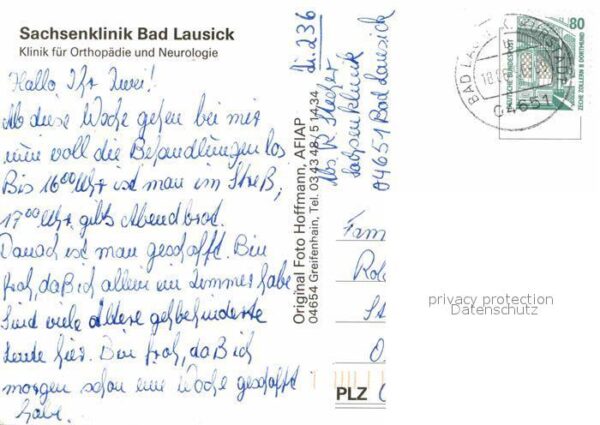 Sachsenklinik Bad Lausick
Klinik für Orthopädie und Neurologie
Hallo Ihr Zwei!
Ab diese Woche gehen bei mir
nun voll die Behandlungen los
Bis 16 00 Uhr ist man im Streß,
17 00 Uhr gibts Abendbrot.
Danach ist man geschafft. Bin
froh, daß ich allein ein Zimmer habe
Sind viele ältere gehbehinderte
Leute hier. Bin froh, daß ich
morgen schon eine Woche geschafft
habe.
Original Foto Hoffmann, AFIAP
04654 Greifenhain, Tel. 03 43 48 / 5 14 34
Zi. 236
Abs. R.
Sachsenklinik
04651 Bad Lausick
BAD LAUSICK
04651
80
DEUTSCHE BUNDESPOST
ZECHE ZOLLERN II DORTMUND
Fam
PLZ
privacy protection
Datenschutz